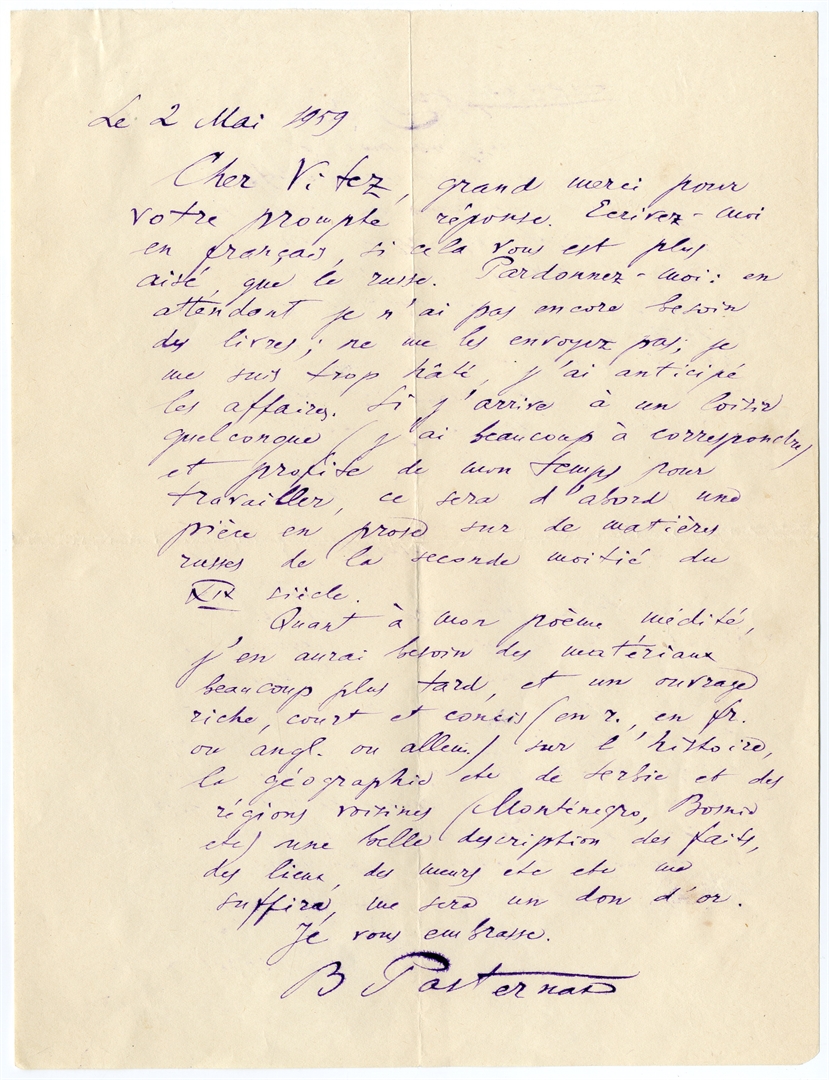 Le 2 Mai 1959
Cher Vitez, grand merci pour
votre prompte réponse. Ecrivez-moi
en français, si cela vous est plus
aisé, que le russe. Pardonnez-moi: en
attendant je n'ai pas encore besoin
des livres; ne me les envoyez pas; je
me suis trop hâté, j'ai anticipé
les affaires. Si j'arrive à un loisir
quelconque (j'ai beaucoup à correspondre)
et profite de mon temps pour
travailler, ce sera d'abord une
pièce en prose sur de matières
russes de la seconde moitié du
XIX siècle.
Quant à mon poème médité,
j'en aurai besoin des matériaux
beaucoup plus tard, et un ouvrage
riche, court et concis (en r., en fr.
ou angl. ou allem.) sur l'histoire,
la géographie etc de Serbie et des
régions voisines (Monténegro, Bosnie
etc) une belle description des faits,
des lieux, des mœurs etc etc me
suffira, me sera un don d'or.
Je vous embrasse.
B Pasternak